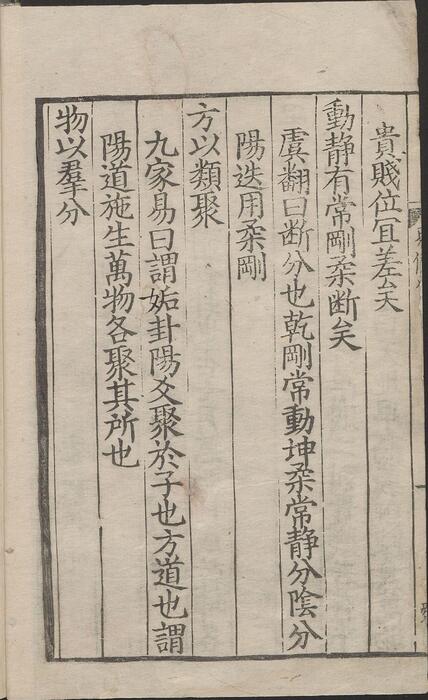 貴賤位宜差矣
動静有常剛柔断矣
虞翻曰断分也乾剛常動坤柔常静分陰分
陽迭用柔剛
方以類聚
九家易曰謂姤卦陽爻聚於子也方道也謂
陽道施生萬物各聚其所也
物以羣分